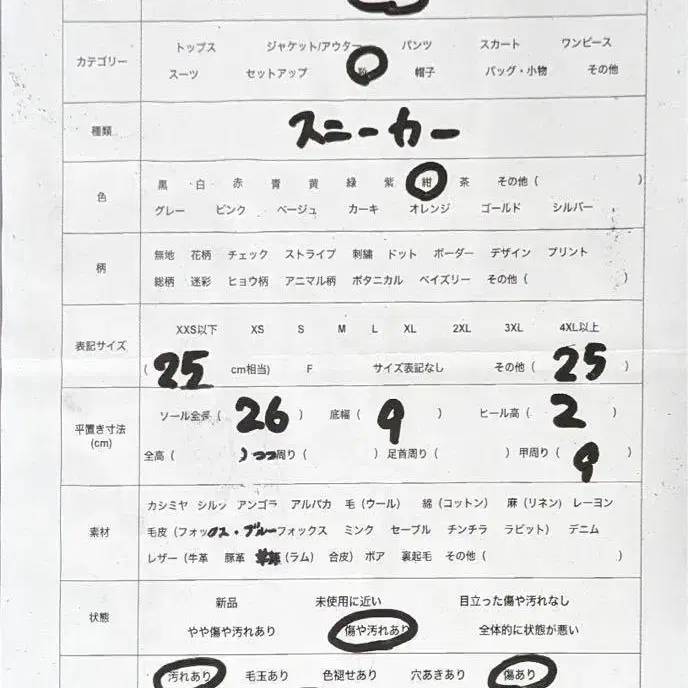 カテゴリー
トップス ジャケット/アウター パンツ スカート ワンピース
スーツ セットアップ 靴 帽子 バッグ・小物 その他
種類 スニーカー
色
黒 白 赤 青 黄 緑 紫 紺 茶 その他 ( )
グレー ピンク ベージュ カーキ オレンジ ゴールド シルバー
柄
無地 花柄 チェック ストライプ 刺繍 ドット ボーダー デザイン プリント
総柄 迷彩 ヒョウ柄 アニマル柄 ボタニカル ペイズリー その他 ( )
表記サイズ
XXS以下 XS S M L XL 2XL 3XL 4XL以上
( 25 cm相当) F サイズ表記なし その他 ( 25 )
平置き寸法
(cm)
ソール全長 ( 26 ) 底幅 ( 9 ) ヒール高 ( 2 )
全高 ( ) つつ周り ( ) 足首周り ( ) 甲周り ( 9 )
素材
カシミヤ シルク アンゴラ アルパカ 毛 (ウール) 綿 (コットン) 麻 (リネン) レーヨン
毛皮 (フォックス・ブルーフォックス ミンク セーブル チンチラ ラビット) デニム
レザー (牛革 豚革 (ラム) 合皮) ボア 裏起毛 その他 ( )
状態
新品 未使用に近い 目立った傷や汚れなし
やや傷や汚れあり 傷や汚れあり 全体的に状態が悪い
汚れあり 毛玉あり 色褪せあり 穴あきあり 傷あり